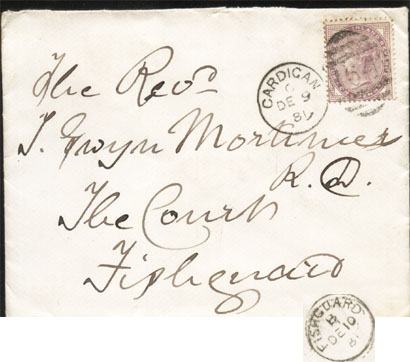 CARDIGAN
C
DE 9
81
The Revd
T. Gwyn Mortimer
R.D.
The Court
Fishguard
FISHGUARD
A
DE 10
81